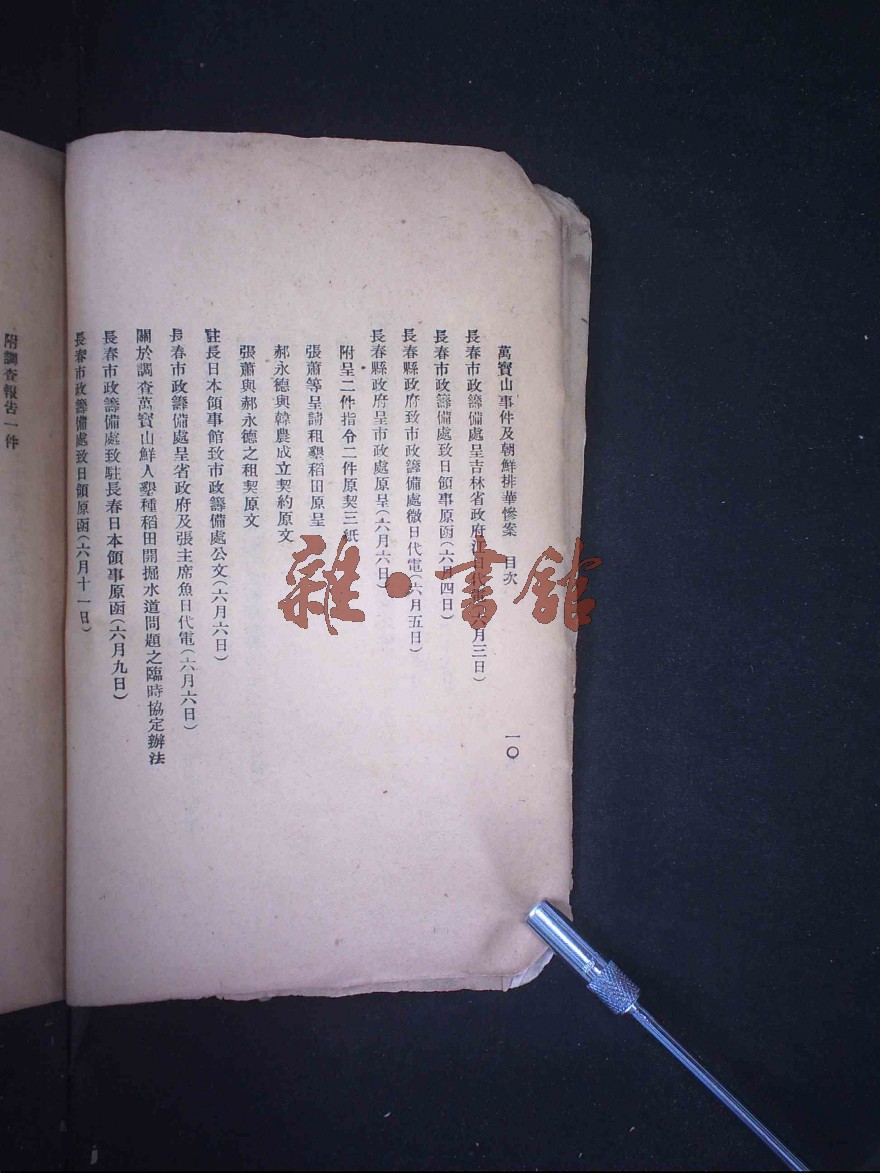 萬寶山事件及朝鮮排華慘案 目次 一〇
長春市政籌備處呈吉林省政府江日代電(六月三日)
長春市政籌備處致日領事原函(六月四日)
長春縣政府致市政籌備處微日代電(六月五日)
長春縣政府呈市政處原呈(六月六日)
附呈二件指令二件原契三紙
張蕭等呈請租墾稻田原呈
郝永德與韓農成立契約原文
張蕭與郝永德之租契原文
駐長日本領事館致市政籌備處公文(六月六日)
長春市政籌備處呈省政府及張主席魚日代電(六月六日)
關於調查萬寶山鮮人墾種稻田開掘水道問題之臨時協定辦法
長春市政籌備處致駐長春日本領事原函(六月九日)
長春市政籌備處致日領原函(六月十一日)
附調查報告一件
雜·書館